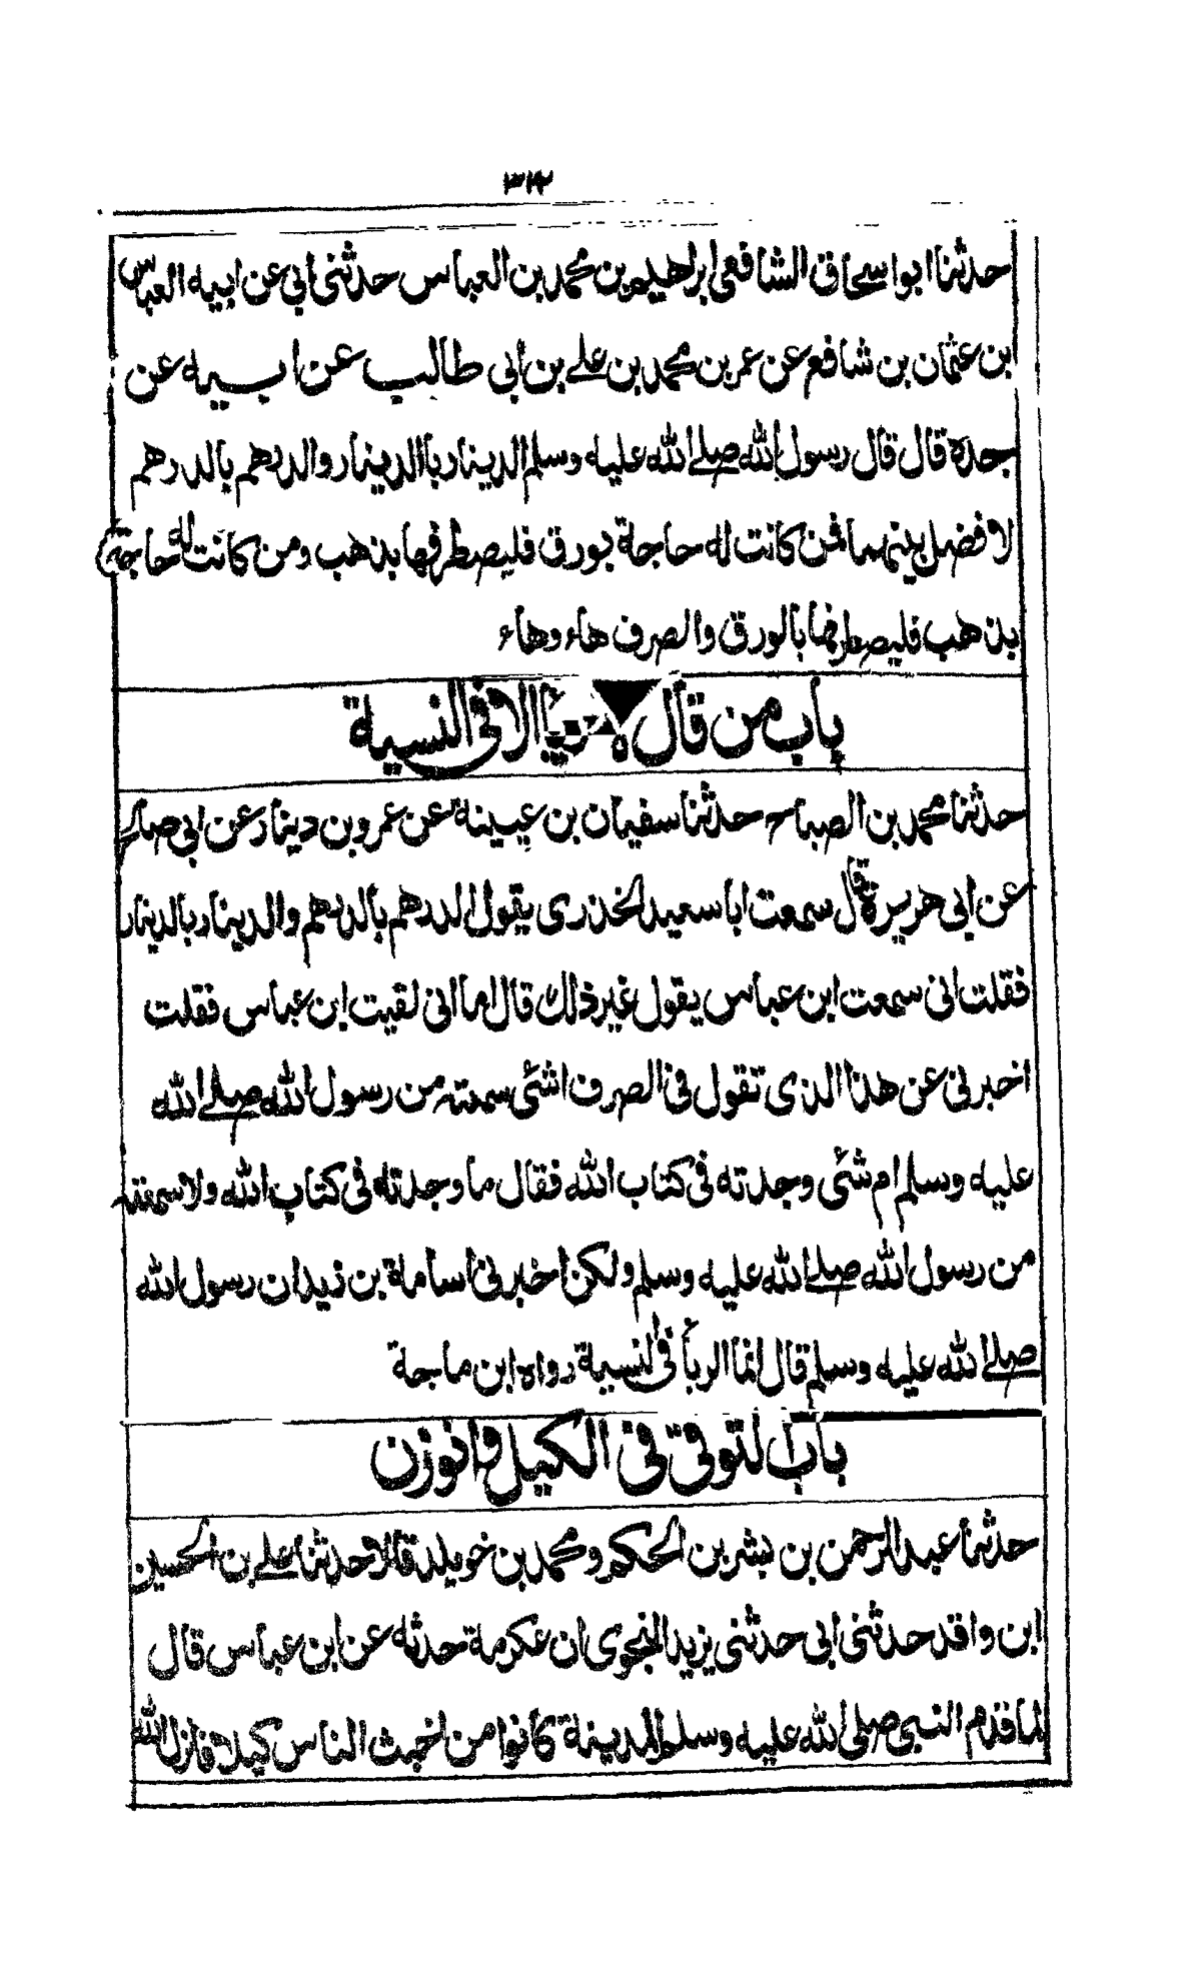 ۳۴۲
حدثنا ابو اسحاق الشافعى ابراهيم بن محمد بن العباس حدثنى ابي عن ابيه العباس
ابن عثمان بن شافع عن عمر بن محمد بن على بن ابى طالب عن ابيه عن
جده قال قال رسول الله صلى الله عليه وسلم الدينار بالدينار والدرهم بالدرهم
لا فضل بينهما فمن كانت له حاجة بورق فليصطرفها بذهب ومن كانت له حاجة
بذهب فليصطرفها بالورق والصرف هاء وهاء
باب من قال لا ربا الا فى النسية
حدثنا محمد بن الصباح حدثنا سفيان بن عيينة عن عمرو بن دينار عن ابى صالح
عن ابى هريرة قال سمعت ابا سعيد الخدرى يقول الدرهم بالدرهم والدينار بالدينار
فقلت انى سمعت ابن عباس يقول غير ذلك قال اما انى لقيت ابن عباس فقلت
اخبرنى عن هذا الذى تقول فى الصرف اشئى سمعته من رسول الله صلى الله
عليه وسلم ام شئى وجدته فى كتاب الله فقال ما وجدته فى كتاب الله ولا سمعته
من رسول الله صلى الله عليه وسلم ولكن اخبرنى اسامة بن زيد ان رسول الله
صلى الله عليه وسلم قال انما الربا فى النسية رواه ابن ماجة
باب التوقى فى الكيل والوزن
حدثنا عبد الرحمن بن بشر بن الحكم ومحمد بن خويلد قالا حدثنا على بن الحسين
ابن واقد حدثنى ابى حدثنى يزيد النحوى ان عكرمة حدثه عن ابن عباس قال
لما قدم النبى صلى الله عليه وسلم المدينة كانوا من اخبث الناس كيلا فانزل الله